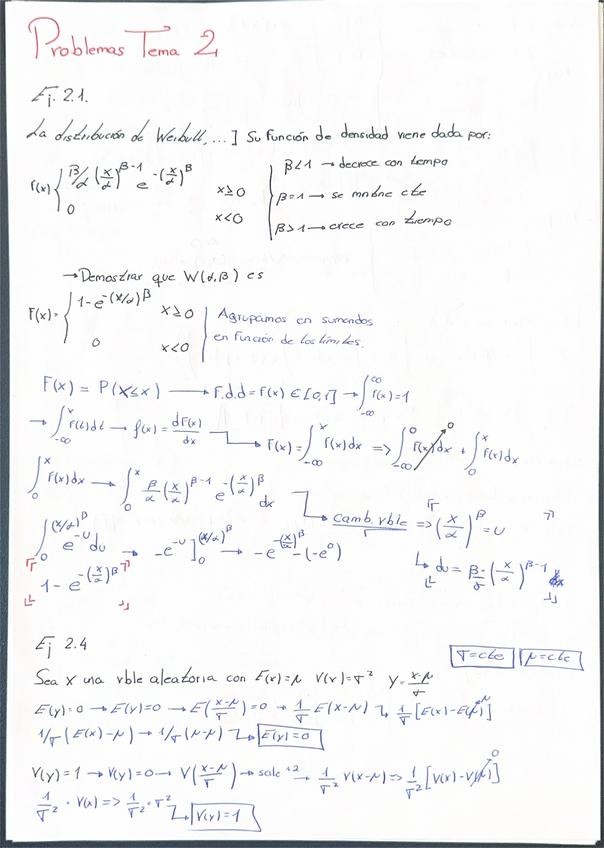 Problemas Tema 2
Ej. 2.1.
La distribución de Weibull, ...] Su función de densidad viene dada por:
f(x) { β/α (x/α)^β-1 e^-(x/α)^β x≥0
0 x<0
β<1 → decrece con tempo
β=1 → se mntne cte
β>1 → crece con tiempo
→ Demostrar que W(α,β) es
F(x)= { 1-e^-(x/α)^β x≥0
0 x<0
Agrupamos en sumandos
en función de los límites.
F(x) = P(X≤x) → F.d.d = f(x) ∈ [0,1] → ∫_-∞^∞ f(x)=1
→ ∫_-∞^x f(t)dt → f(x) = dF(x)/dx → F(x) = ∫_-∞^x f(x)dx => ∫_-∞^0 f(x)dx + ∫_0^x f(x)dx
∫_0^x f(x)dx → ∫_0^x β/α (x/α)^β-1 e^-(x/α)^β dx
Camb. vble => (x/α)^β = u
∫_0^(x/α)^β e^-u du → -e^-u ]_0^(x/α)^β → -e^-(x/α)^β - (-e^0)
du = β/σ · (x/α)^β-1
1 - e^-(x/α)^β
Ej 2.4
σ=cte μ=cte
Sea X una vble aleatoria con E(x)=μ V(x)=σ² Y=x-μ/σ
E(y)=0 → E(y)=0 → E(x-μ/σ)=0 → 1/σ E(x-μ) ↳ 1/σ [E(x)-E(μ)^μ]
1/σ (E(x)-μ) → 1/σ (μ-μ) ↳ E(y)=0
V(y)=1 → V(y)=0 → V(x-μ/σ) → sale ^2 → 1/σ² V(x-μ) => 1/σ² [V(x)-V(μ)^0]
1/σ² · V(x) => 1/σ² · σ² ↳ V(y)=1